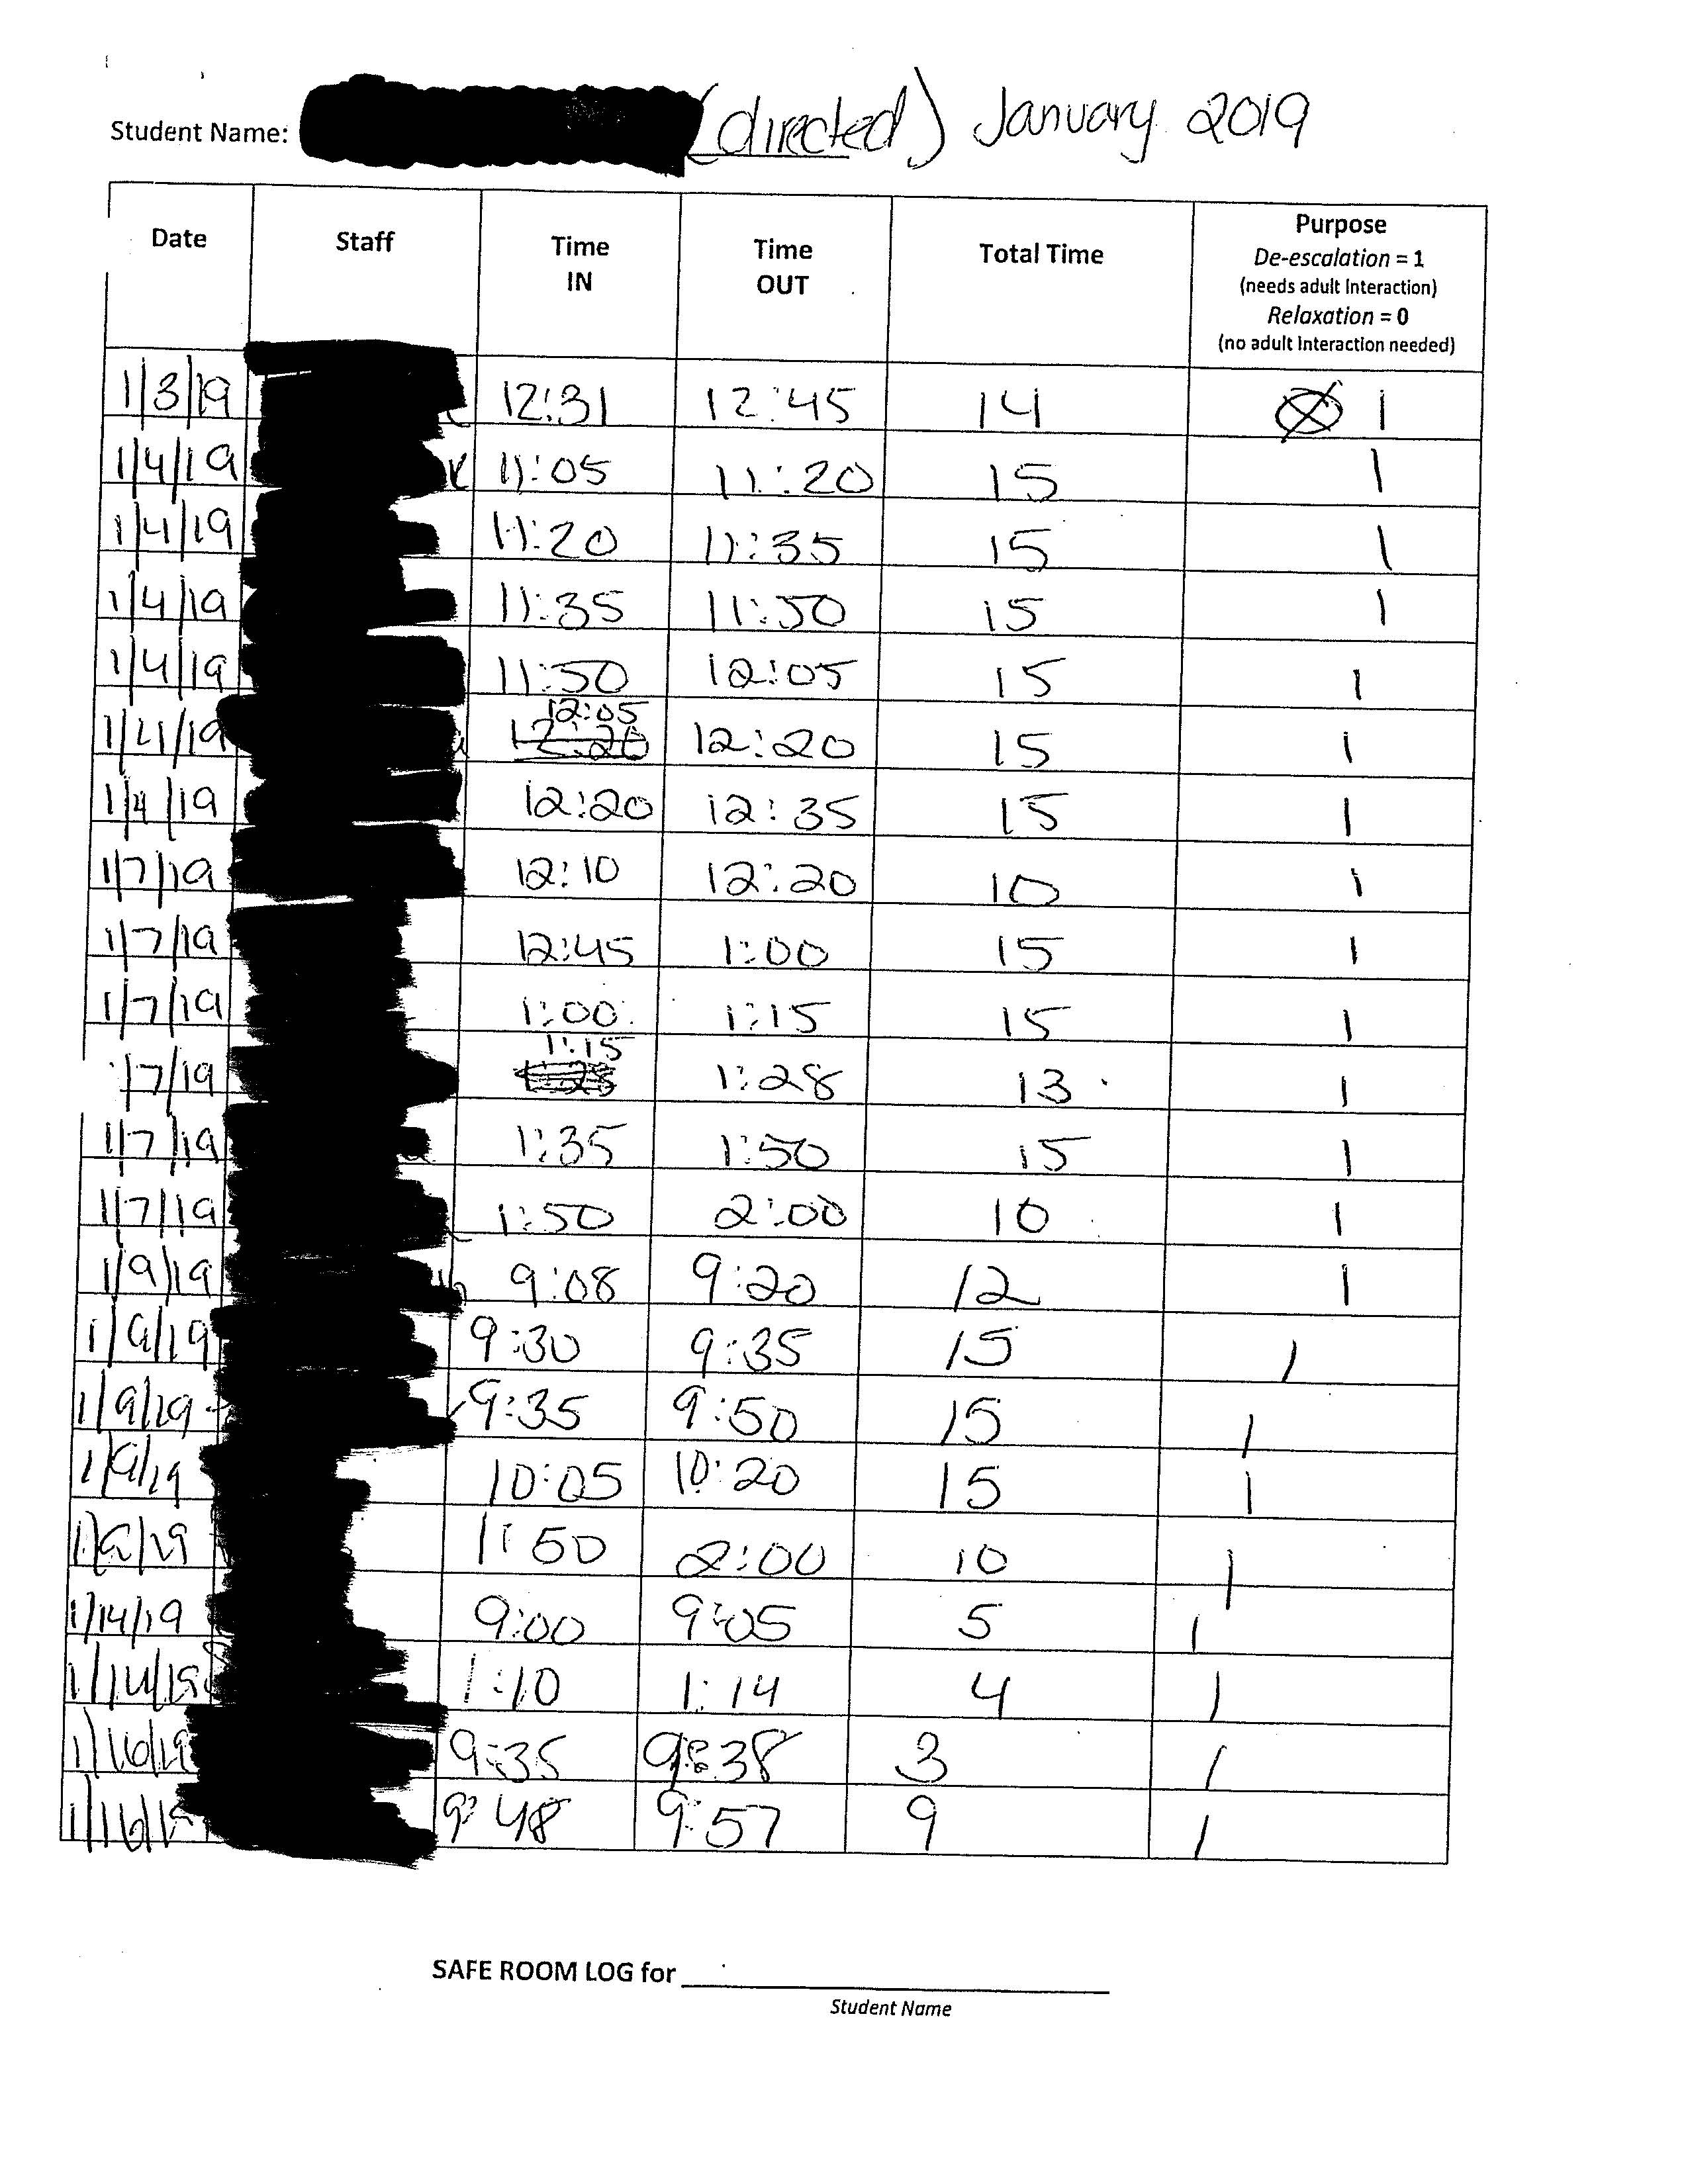 Student Name: (directed) January 2019
Date Staff Time IN Time OUT Total Time Purpose
De-escalation = 1
(needs adult Interaction)
Relaxation = 0
(no adult Interaction needed)
1/3/19 12:31 12:45 14 1
1/4/19 11:05 11:20 15 1
1/4/19 11:20 11:35 15 1
1/4/19 11:35 11:50 15 1
1/4/19 11:50 12:05 15 1
1/4/19 12:05 12:20 12:20 15 1
1/4/19 12:20 12:35 15 1
1/7/19 12:10 12:20 10 1
1/7/19 12:45 1:00 15 1
1/7/19 1:00 1:15 15 1
1/7/19 1:15 1:28 1:28 13 1
1/7/19 1:35 1:50 15 1
1/7/19 1:50 2:00 10 1
1/9/19 9:08 9:20 12 1
1/9/19 9:30 9:35 15 1
1/9/19 9:35 9:50 15 1
1/9/19 10:05 10:20 15 1
1/9/19 1:50 2:00 10 1
1/14/19 9:00 9:05 5 1
1/14/19 1:10 1:14 4 1
1/16/19 9:35 9:38 3 1
1/16/19 9:48 9:57 9 1
SAFE ROOM LOG for
Student Name